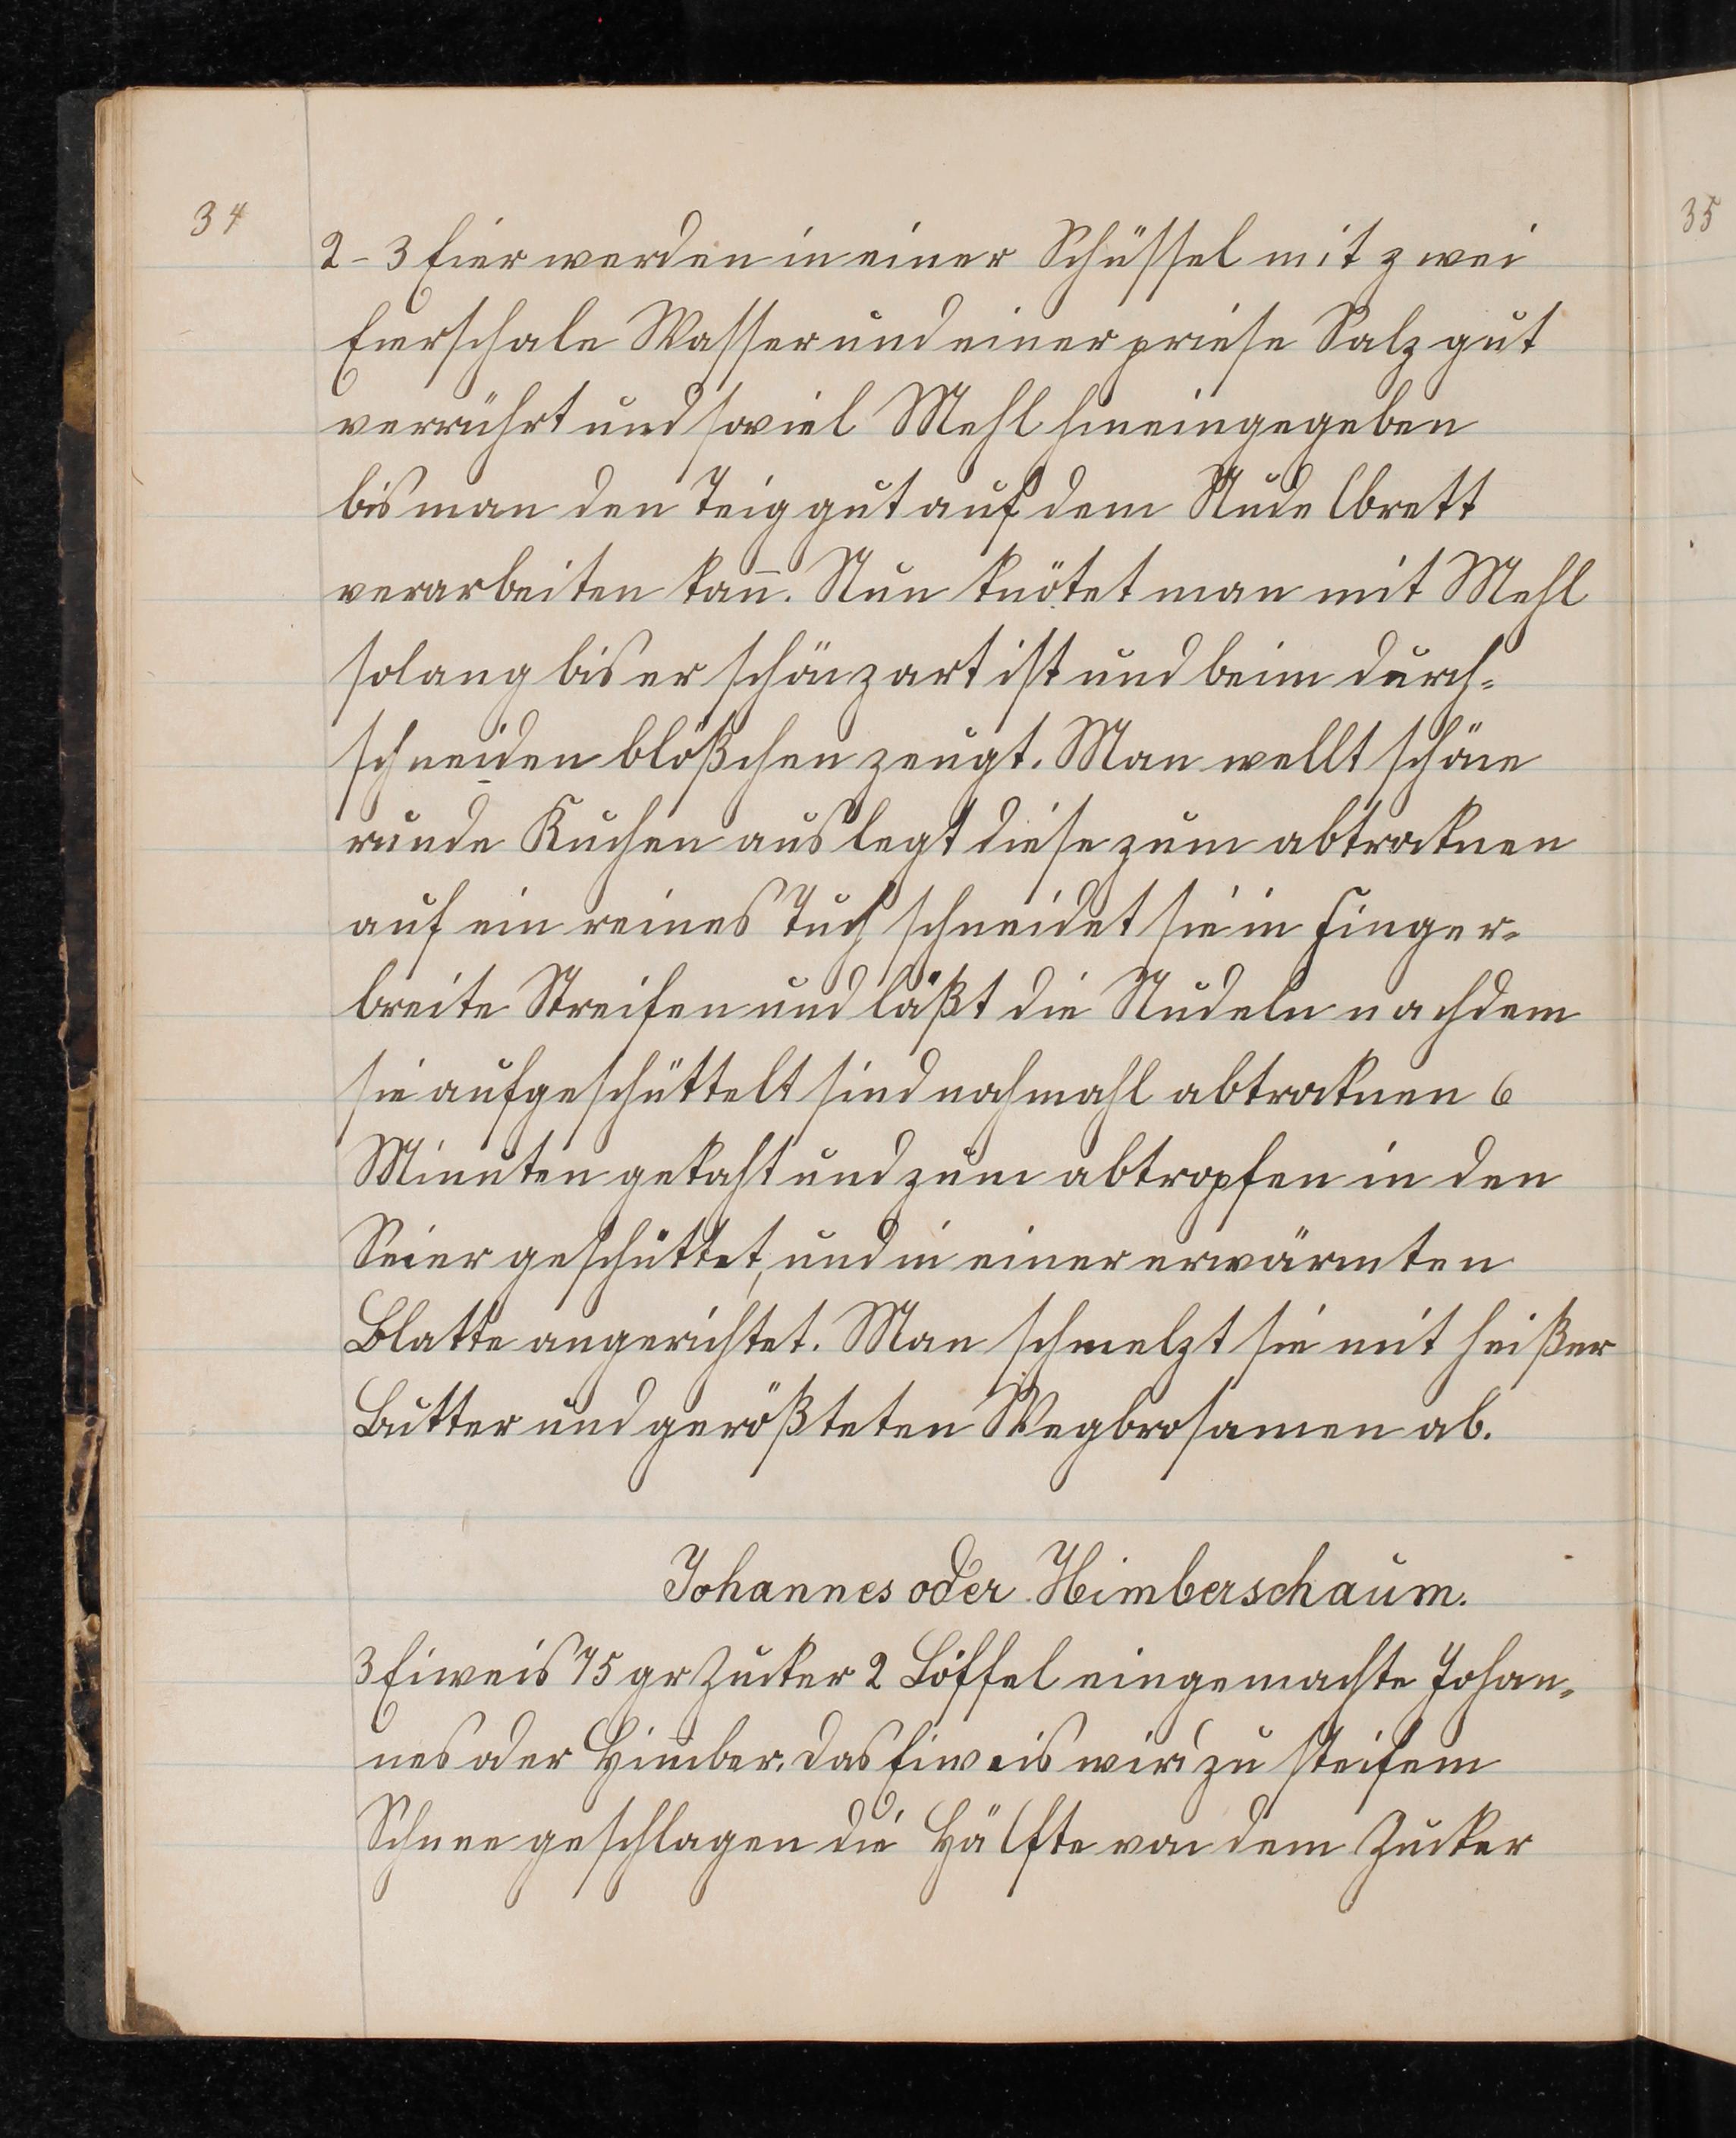 34
35
2-3 Eier werden in einer Schüssel mit zwei
Eierschale Wasser und einer priese Salz gut
verrührt und soviel Mehl hineingegeben
bis man den Teig gut auf dem Nudelbrett
verarbeiten kan̄. Nun knötet man mit Mehl
solang bis er schön zart ist und beim durch=
schneiden blößchen zeugt. Man wellt schöne
runde Kuchen aus legt diese zum abtroknen
auf ein reines Tuch schneidet sie in Finger=
breite Streifen und läßt die Nudeln nachdem
sie aufgeschüttelt sind nochmahl abtroknen 6
Minuten gekocht und zum abtropfen in den
Seier geschüttet, und in einer erwärmten
Blatte angerichtet. Man schmelzt sie mit heißer
Butter und gerößteten Wegbrosamen ab.
Johannes oder Himberschaum.
3 Eiweis 75 gr Zucker 2 Löffel eingemachte Johan=
nes oder Himber. Das Eiweis wird zu steifem
Schnee geschlagen die Hälfte von dem Zucker